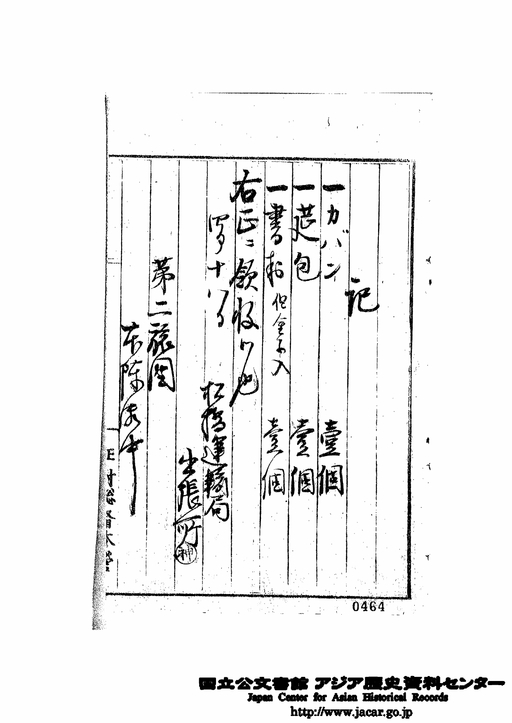 記
一カバン 壹個
一莚包 壹個
一書物 但金子入 壹個
右正ニ領収候也
四月十八日
松橋運輸局
出張所
第二旅団
本陣
0464
国立公文書館 アジア歴史資料センター
Japan Center for Asian Historical Records
http://www.jacar.go.jp